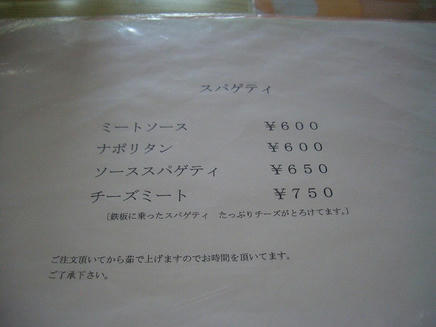 スパゲティ
ミートソース ￥６００
ナポリタン ￥６００
ソーススパゲティ ￥６５０
チーズミート ￥７５０
（鉄板に乗ったスパゲティ たっぷりチーズがとろけてます。）
ご注文頂いてから茹で上げますのでお時間を頂いてます。
ご了承下さい。